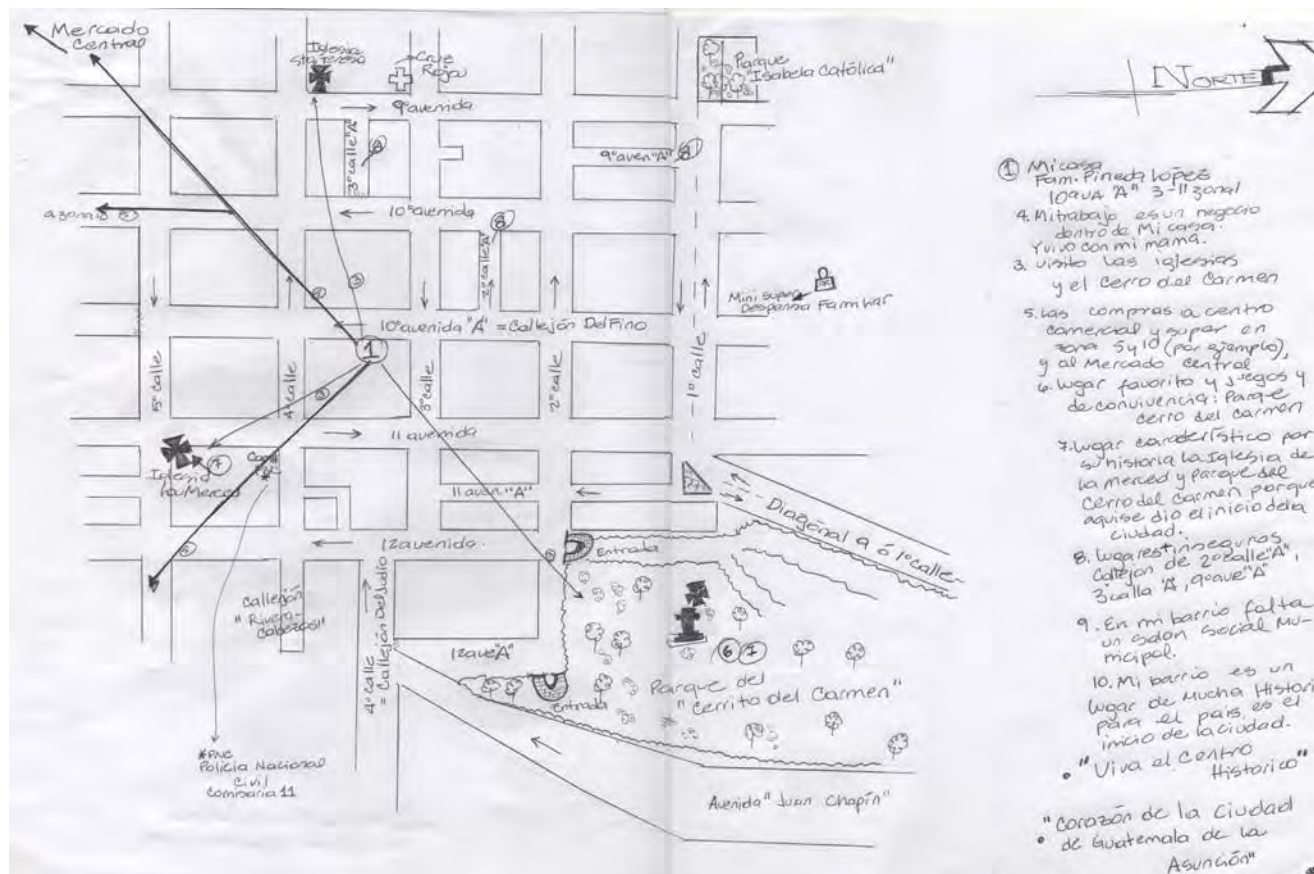 Mercado
Central
Iglesia
Sta Teresa
Cruz
Roja
Parque
"Isabela Católica"
NORTE
9ª avenida
3ª calle "A"
8
9ª aven "A"
8
10ª avenida
8
2ª calle "A"
3
Mini super
Despensa Familiar
10ª avenida "A" = Callejón DelFino
1
5ª calle
4ª calle
3ª calle
2ª calle
1ª calle
11 avenida
7
Iglesia
La Merced
11 aven. "A"
Diagonal 9 ó 1ª calle
12 avenida
Entrada
Callejón
"Rivera
Cabezas"
4ª calle
= Callejón Del Judío
12 ave "A"
Entrada
6 7
Parque del
"Cerrito del Carmen"
*PNC
Policia Nacional
Civil
Comisaria 11
Avenida "Juan Chapín"
1 Mi casa
Fam. Pineda López
10 ava "A" 3-11 zona 1
4. Mi trabajo es un negocio
dentro de Mi casa.
Y vivo con mi mamá.
3. visito las iglesias
y el cerro del Carmen
5. las compras a centro
comercial y super en
zona 5 y 10 (por ejemplo),
y al Mercado central
6. lugar favorito y juegos y
de convivencia: Parque
cerro del carmen
7. Lugar caraderístico por
su historia la Iglesia de
la merced y parque del
Cerro del Carmen porque
aqui se dio el inicio de la
ciudad.
8. lugares inseguros
Callejon de 2ª calle "A",
3ª calla "A", 9ª ave "A"
9. En mi barrio falta
un salon social Mu-
nicipal.
10. Mi barrio es un
lugar de Mucha Histori
para el país, es el
inicio de la ciudad.
"Viva el Centro
Historico"
"Corazón de la Ciudad
de Guatemala de la
Asunción"